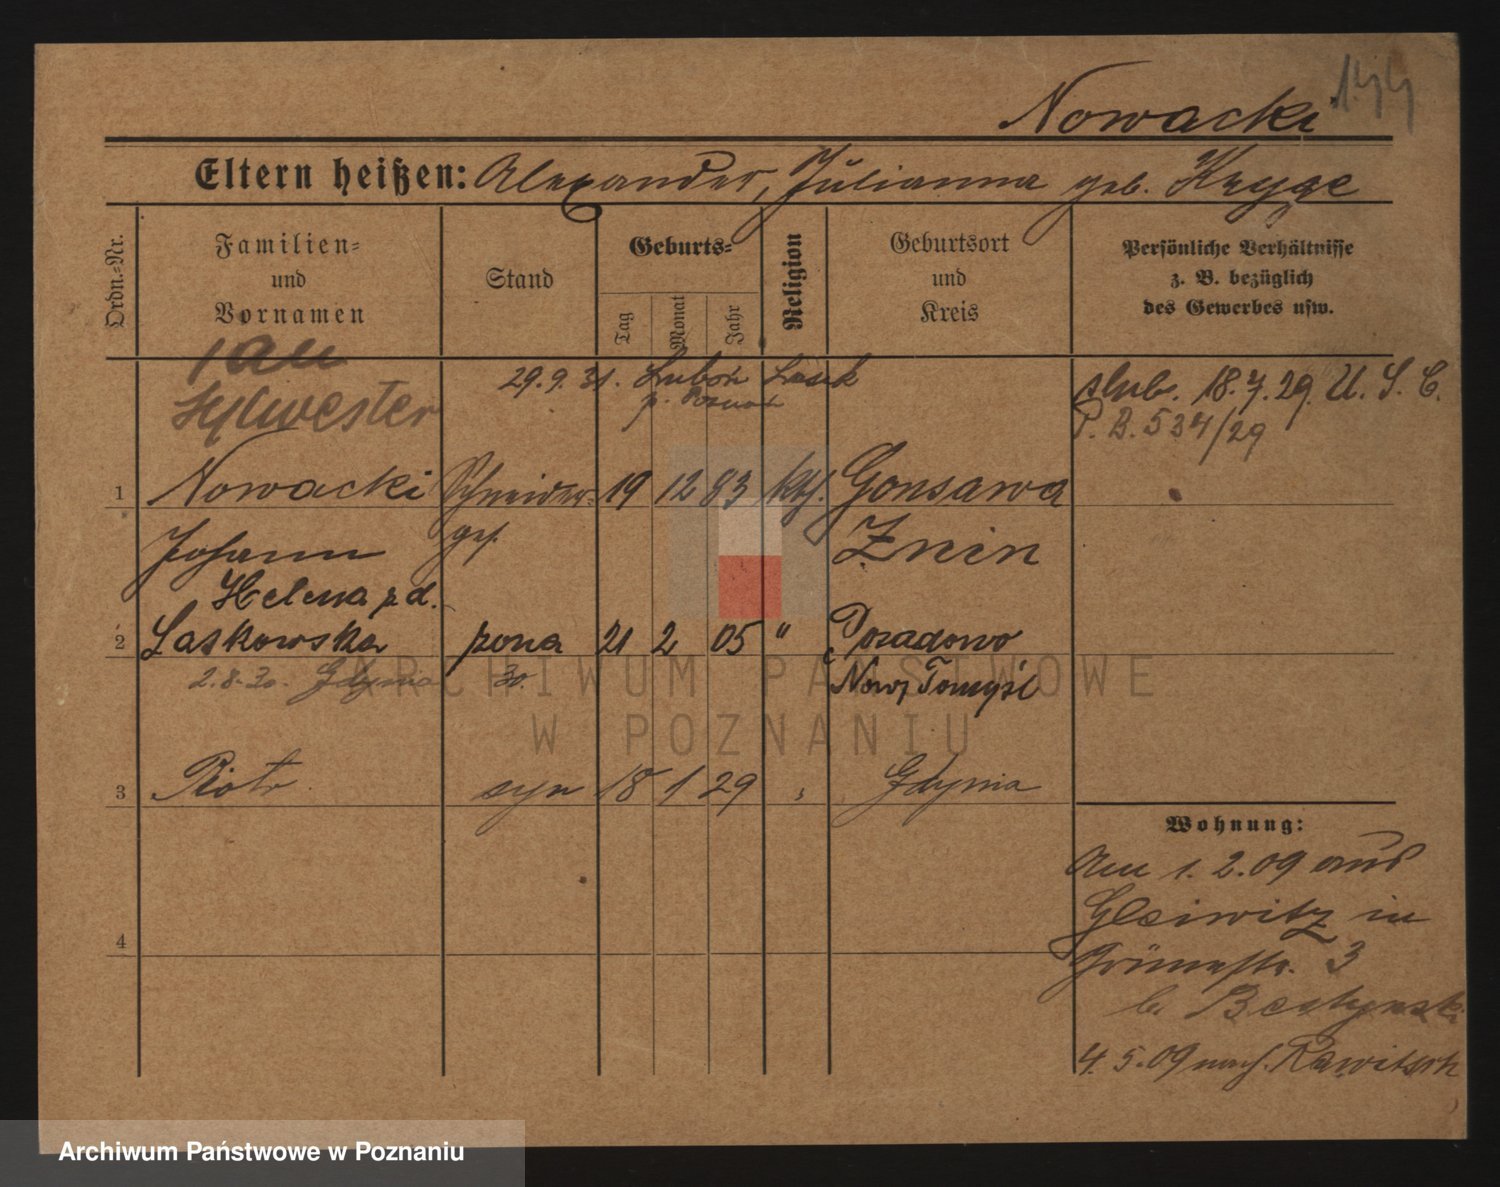 Nowacki
Eltern heißen: Alexander, Julianna geb. Kryge
Ordn.-Nr.
Familien-
und
Vornamen
Stand
Geburts-
Tag
Monat
Jahr
Religion
Geburtsort
und
Kreis
Persönliche Verhältnisse
z. B. bezüglich
des Gewerbes usw.
Jan
Sylwester
29.9.31. Luboń Lasek
p. Poznań
slub. 18.7.29 U. S. C.
P. B. 534/29
1 Nowacki Schneider- 19 12 83 kth. Gonsawa
Johann ges. Znin
Helena z d.
2 Laskowska żona 21 2 05 " Posadowo
2.8.30. Gdynia 30. Nowy Tomyśl
3 Piotr syn 18 1 29 " Gdynia
4
Wohnung:
Am 1.2.09 aus
Gleiwitz in
Grünestr. 3
b.
4.5.09 nach Rawitsch
ARCHIWUM PAŃSTWOWE
W POZNANIU
Archiwum Państwowe w Poznaniu